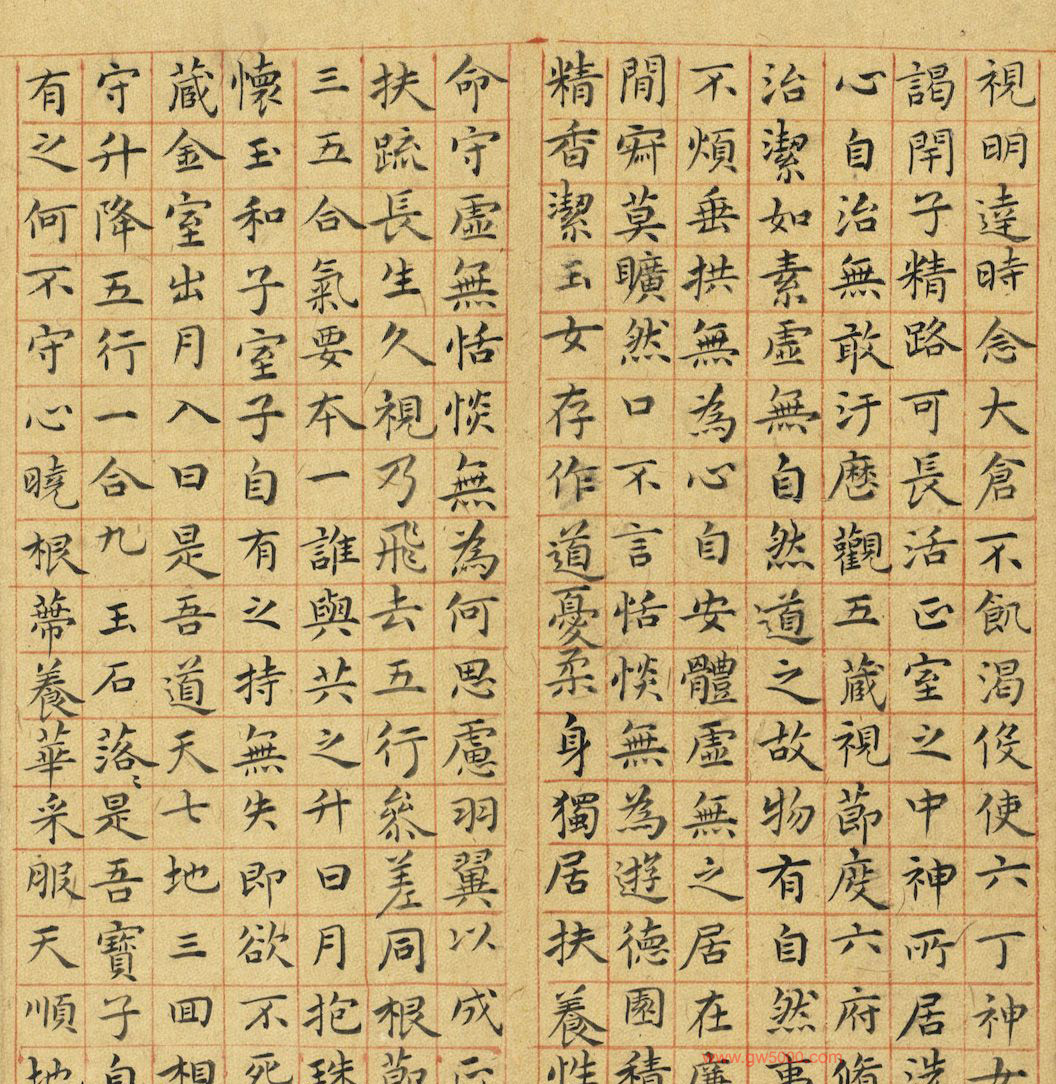 視明達時念大倉不飢渴役使六丁神女
謁閇子精路可長活正室之中神所居洗
心自治無敢汙歷觀五藏視節度六府脩
治潔如素虛無自然道之故物有自然事
不煩垂拱無為心自安體虛無之居在廉
間寂莫曠然口不言恬惔無為遊德園積
精香潔玉女存作道憂柔身獨居扶養性
命守虛無恬惔無為何思慮羽翼以成正
扶疏長生久視乃飛去五行參差同根節
三五合氣要本一誰與共之升日月抱珠
懷玉和子室子自有之持無失即欲不死
藏金室出月入日是吾道天七地三回相
守升降五行一合九玉石落〻是吾寶子自
有之何不守心曉根蔕養華采服天順地
www.gw5000.com